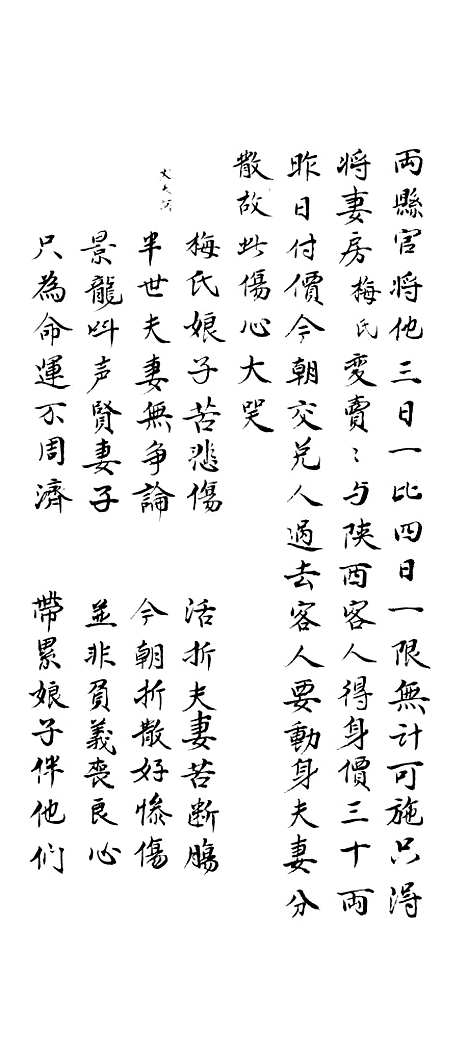 両縣官將他三日一比四日一限無計可施只得
將妻房梅氏变賣〻与陝西客人得身價三十両
昨日付價今朝交兑人過去客人要動身夫妻分
散故此傷心大哭
梅氏娘子苦悲傷 活折夫妻苦断腸
半世夫妻無争論 今朝折散好惨傷
景龍呌声賢妻子 並非負義喪良心
只為命運不周濟 帶累娘子伴他们